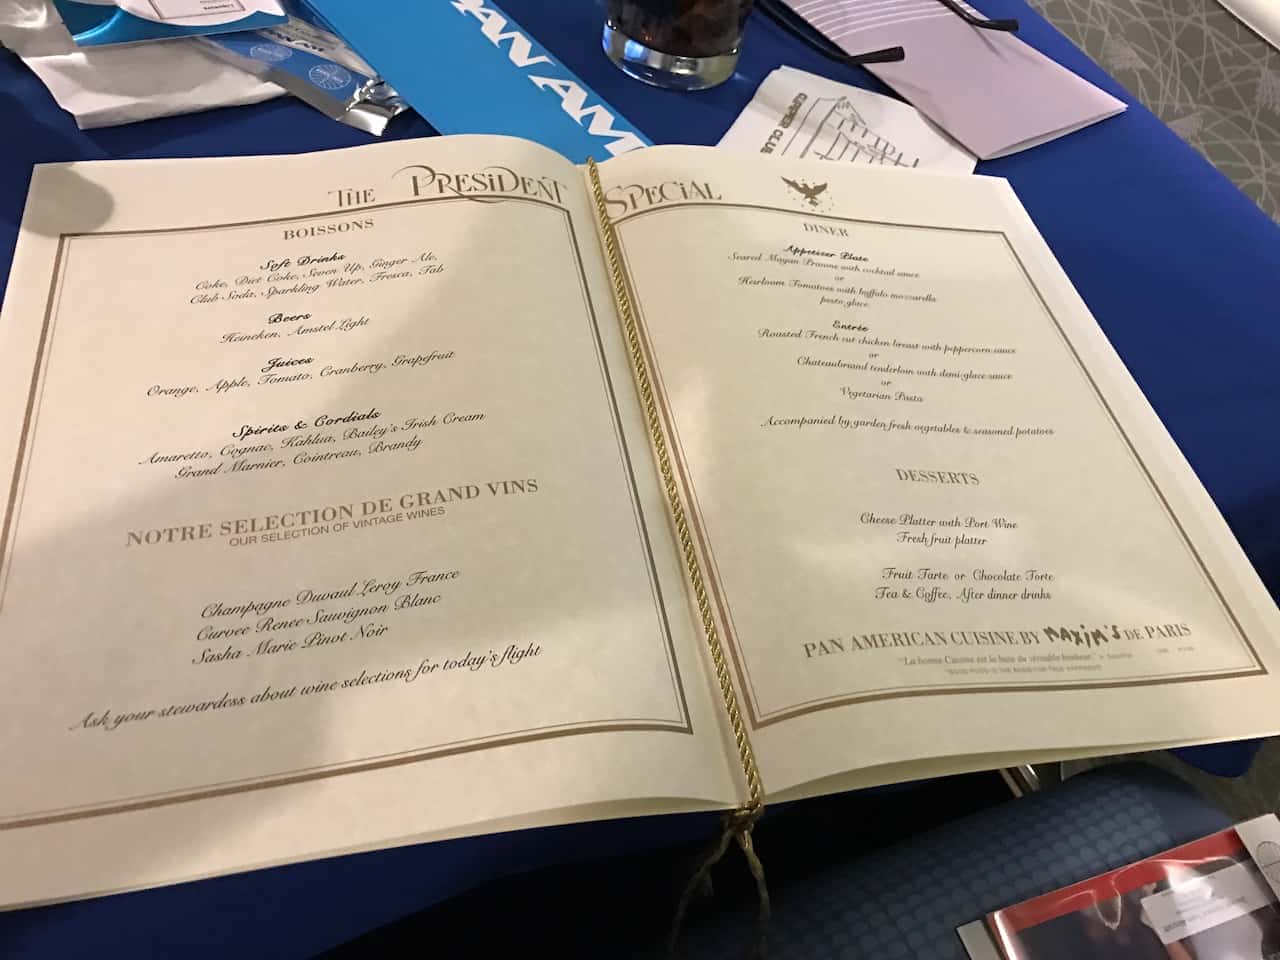 PAN AM
CLIPPER CLUB
THE PRESIDENT SPECIAL
BOISSONS
Soft Drinks
Coke, Diet Coke, Seven Up, Ginger Ale,
Club Soda, Sparkling Water, Fresca, Tab
Beers
Heineken, Amstel Light
Juices
Orange, Apple, Tomato, Cranberry, Grapefruit
Spirits & Cordials
Amaretto, Cognac, Kahlua, Bailey's Irish Cream
Grand Marnier, Cointreau, Brandy
NOTRE SELECTION DE GRAND VINS
OUR SELECTION OF VINTAGE WINES
Champagne Duvaul Leroy France
Curvee Renee Sauvignon Blanc
Sasha Marie Pinot Noir
Ask your stewardess about wine selections for today's flight
DINER
Appetizer Plate
Seared Mayan Prawns with cocktail sauce
or
Heirloom Tomatoes with buffalo mozzarella
pesto glace
Entrée
Roasted French cut chicken breast with peppercorn sauce
or
Chateaubriand tenderloin with demi-glace sauce
or
Vegetarian Pasta
Accompanied by garden fresh vegetables & seasoned potatoes
DESSERTS
Cheese Platter with Port Wine
Fresh fruit platter
Fruit Tarte or Chocolate Torte
Tea & Coffee, After dinner drinks
PAN AMERICAN CUISINE BY MAXIM'S DE PARIS
"La bonne Cuisine est la base du véritable bonheur."
"GOOD FOOD IS THE BASIS FOR TRUE HAPPINESS"